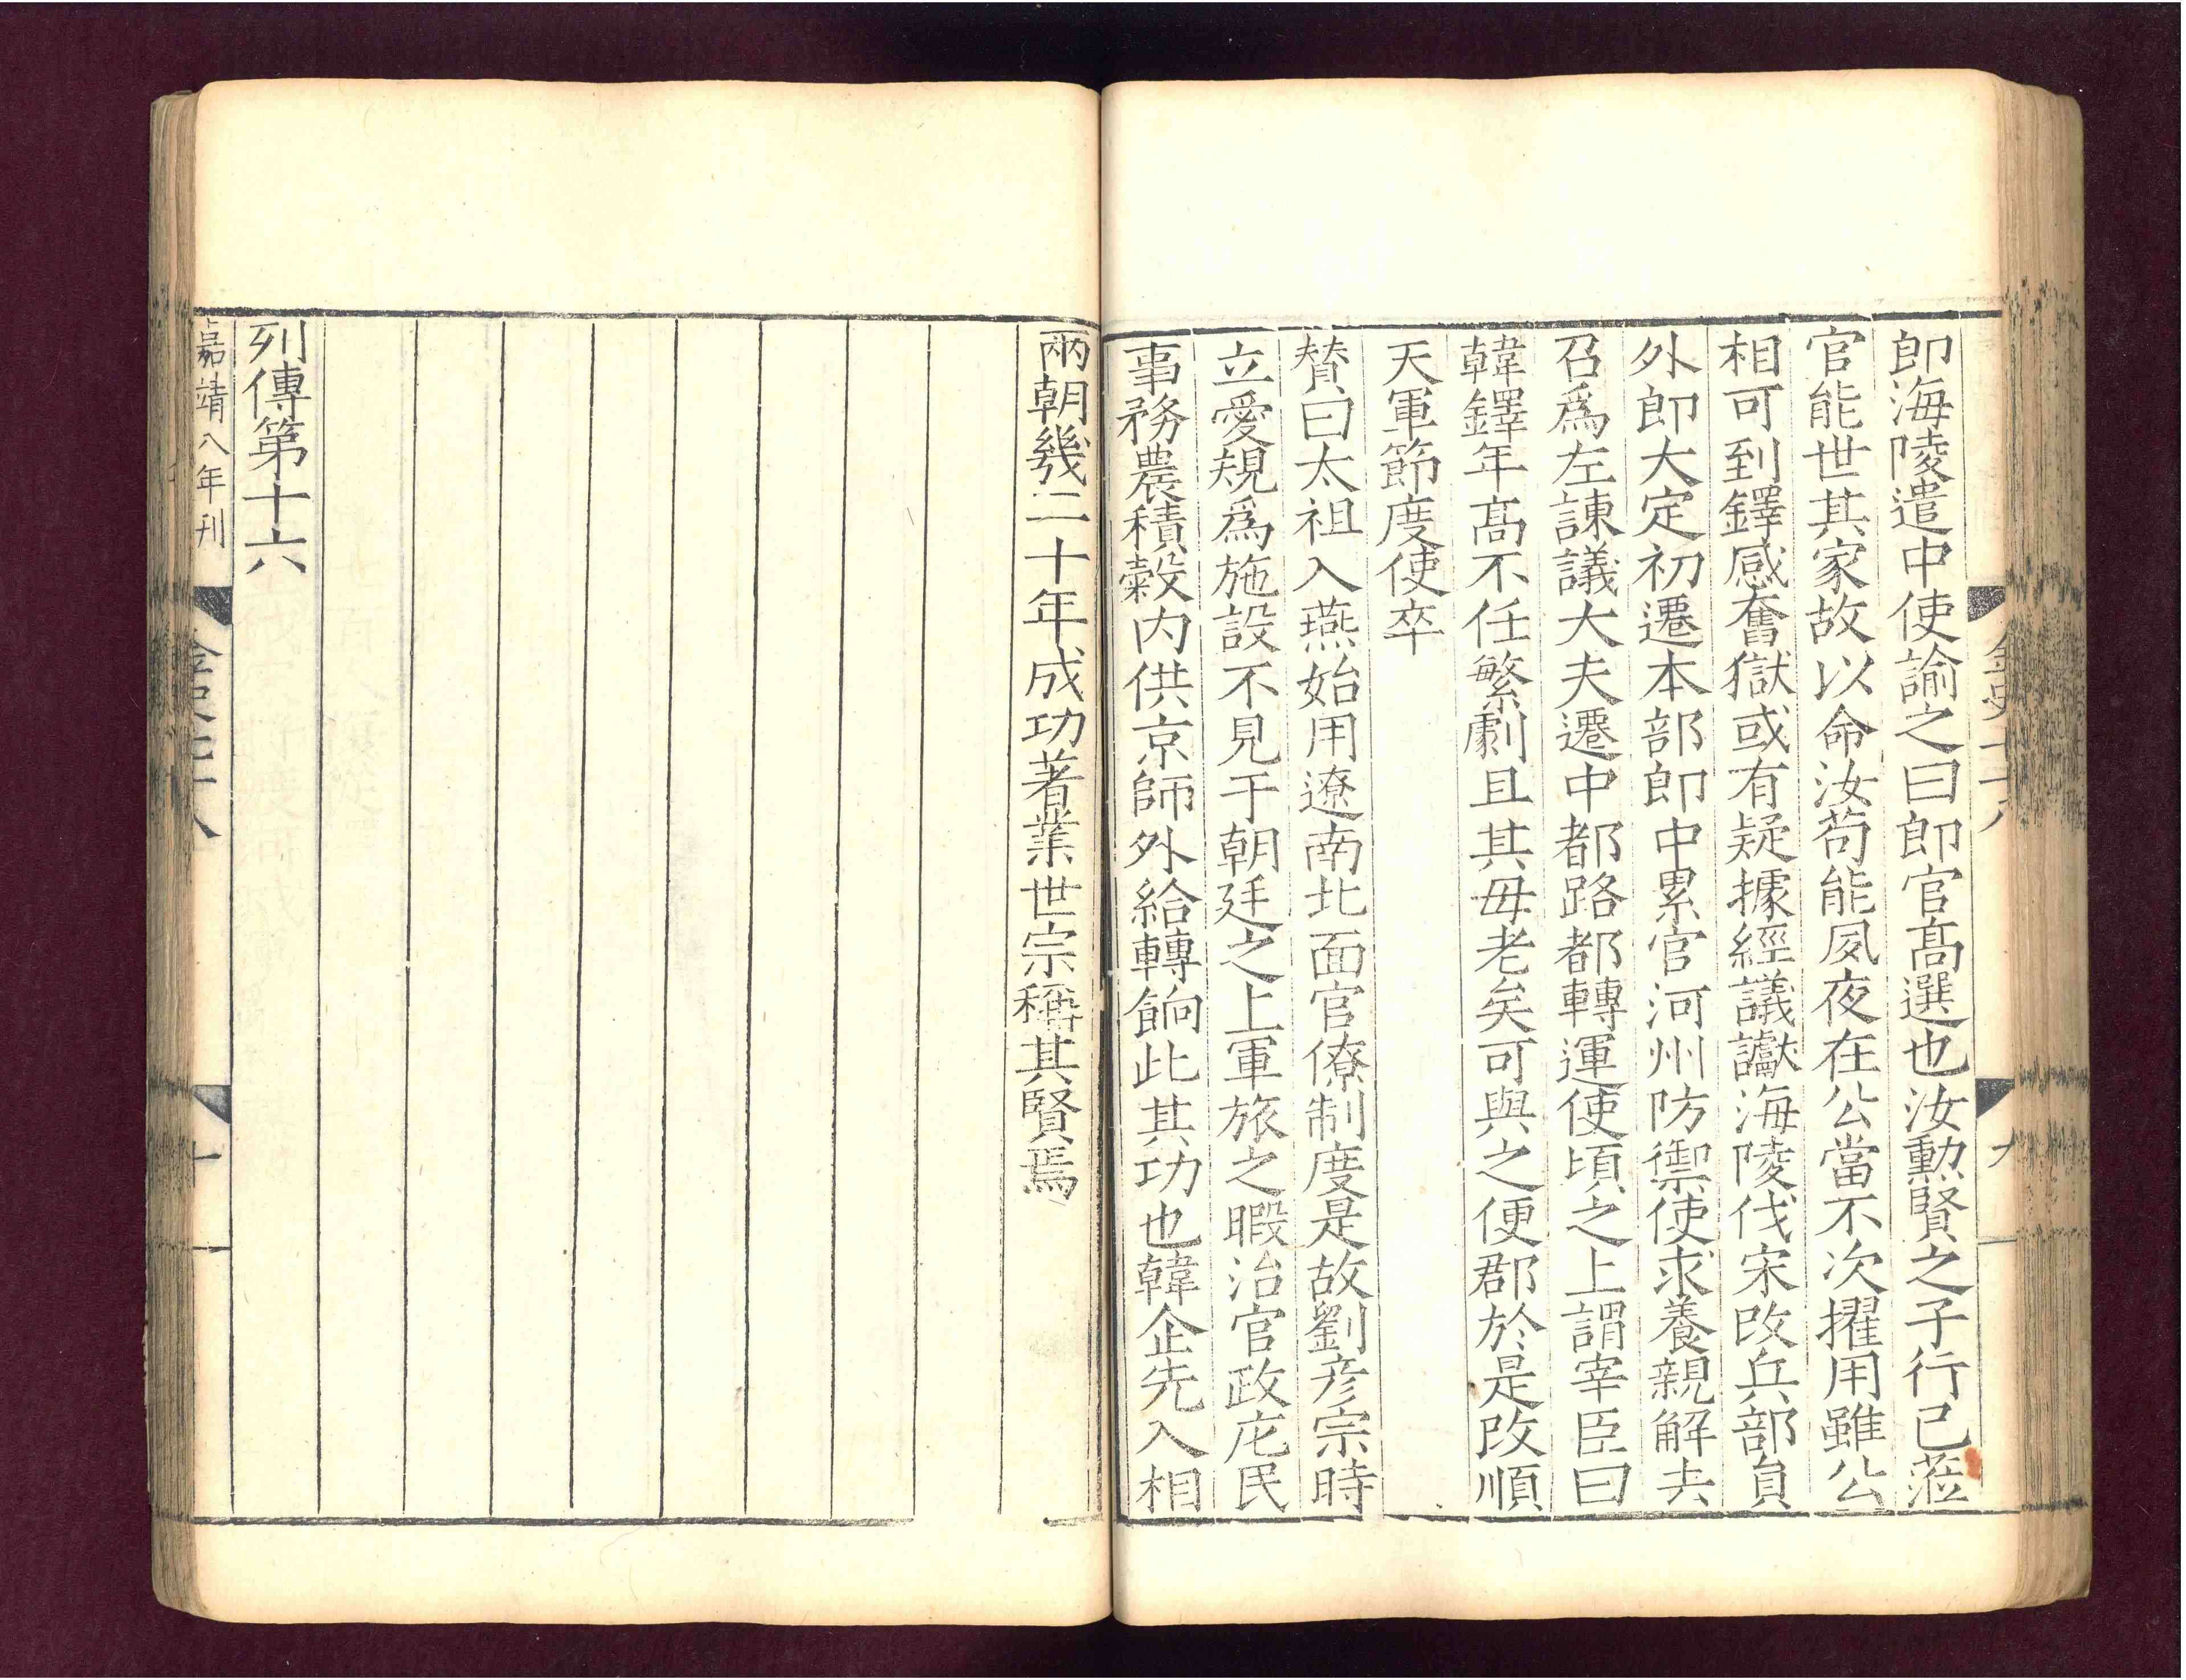 金史七十八
九
即海陵遣中使諭之曰郎官髙選也汝勲賢之子行已蒞
官能世其家故以命汝苟能夙夜在公當不次擢用雖公
相可到鐸感奮獄或有疑據經議讞海陵伐宋改兵部員
外郎大定初遷本部郎中累官河州防禦使求養親解去
召爲左諫議大夫遷中都路都轉運使頃之上謂宰臣曰
韓鐸年髙不任繁劇且其母老矣可與之便郡於是改順
天軍節度使卒
賛曰太祖入燕始用遼南北面官僚制度是故劉彦宗時
立愛規爲施設不見于朝廷之上軍旅之暇治官政庀民
事務農積糓内供京師外給轉餉此其功也韓企先入相
兩朝幾二十年成功著業世宗稱其賢焉
列傳第十六
嘉靖八年刊
金史七十八
十